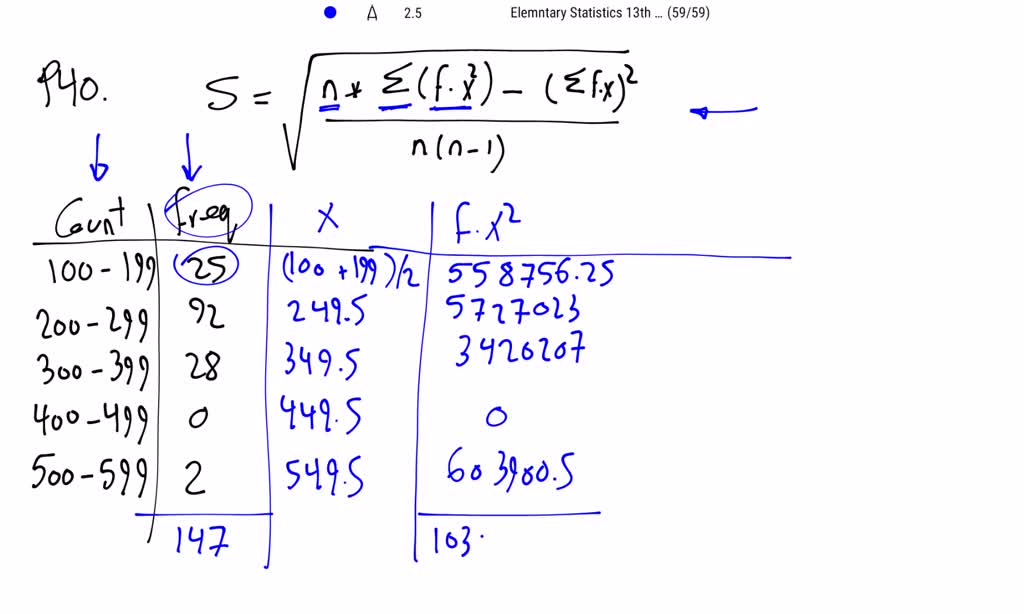 A 2.5 Elemntary Statistics 13th ... (59/59)
P40. S = √ n * Σ(f.x²) - (Σf.x)²
n(n-1)
Count Freq. X f.x²
100-199 25 (100+199)/2 558756.25
200-299 92 249.5 5727023
300-399 28 349.5 3420207
400-499 0 449.5 0
500-599 2 549.5 603900.5
147 103.